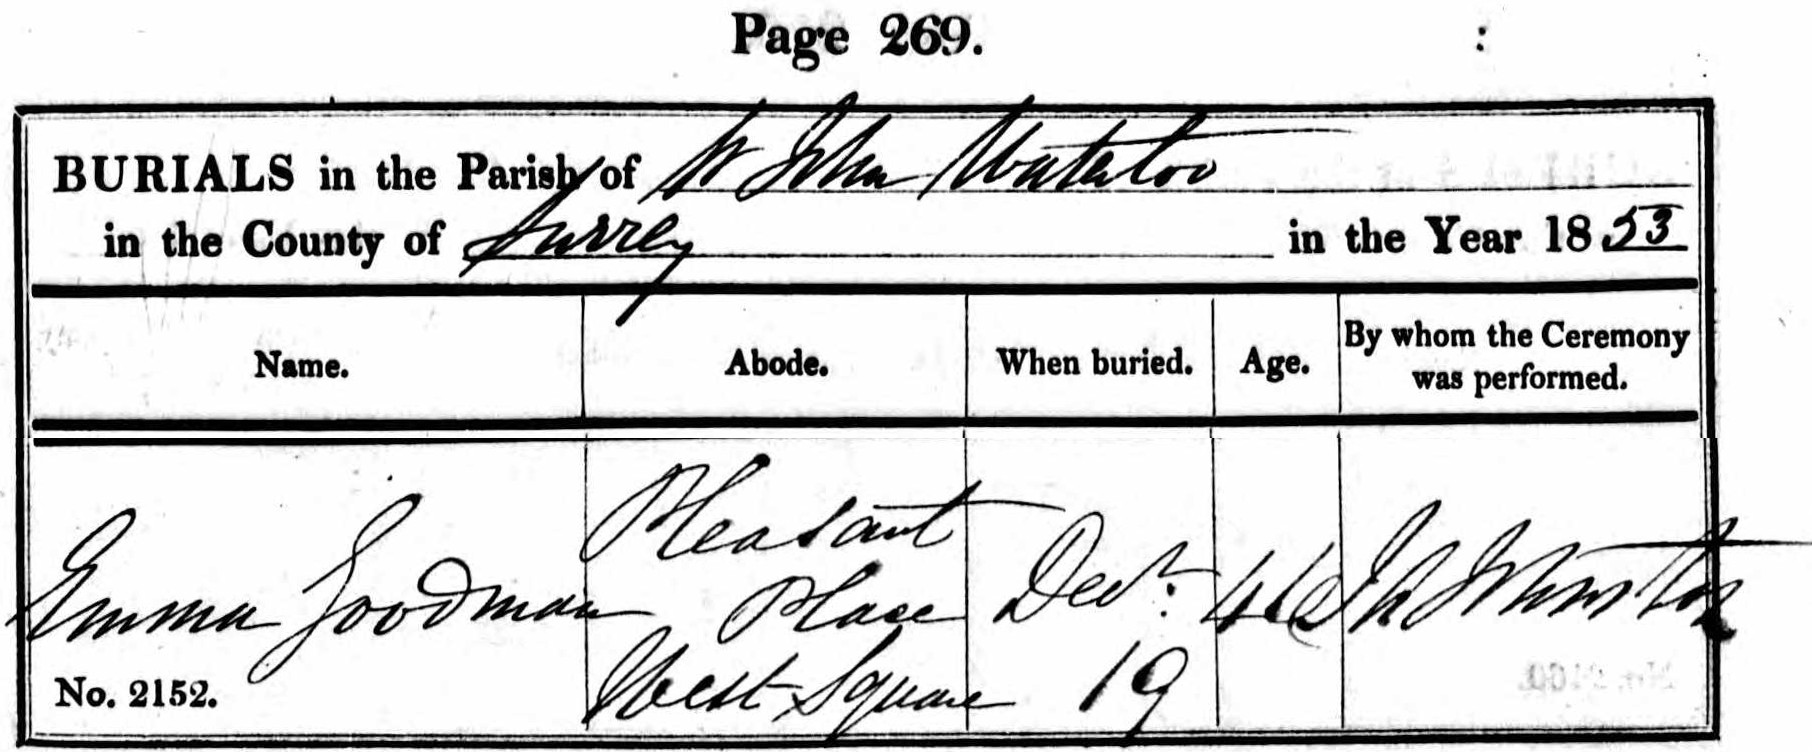 Page 269.
BURIALS in the Parish of St John Waterloo
in the County of Surrey in the Year 1853
Name. Abode. When buried. Age. By whom the Ceremony was performed.
Pleasant
Emma Goodman Place Decr. 46 Jn Johnston
West Square 19
No. 2152.